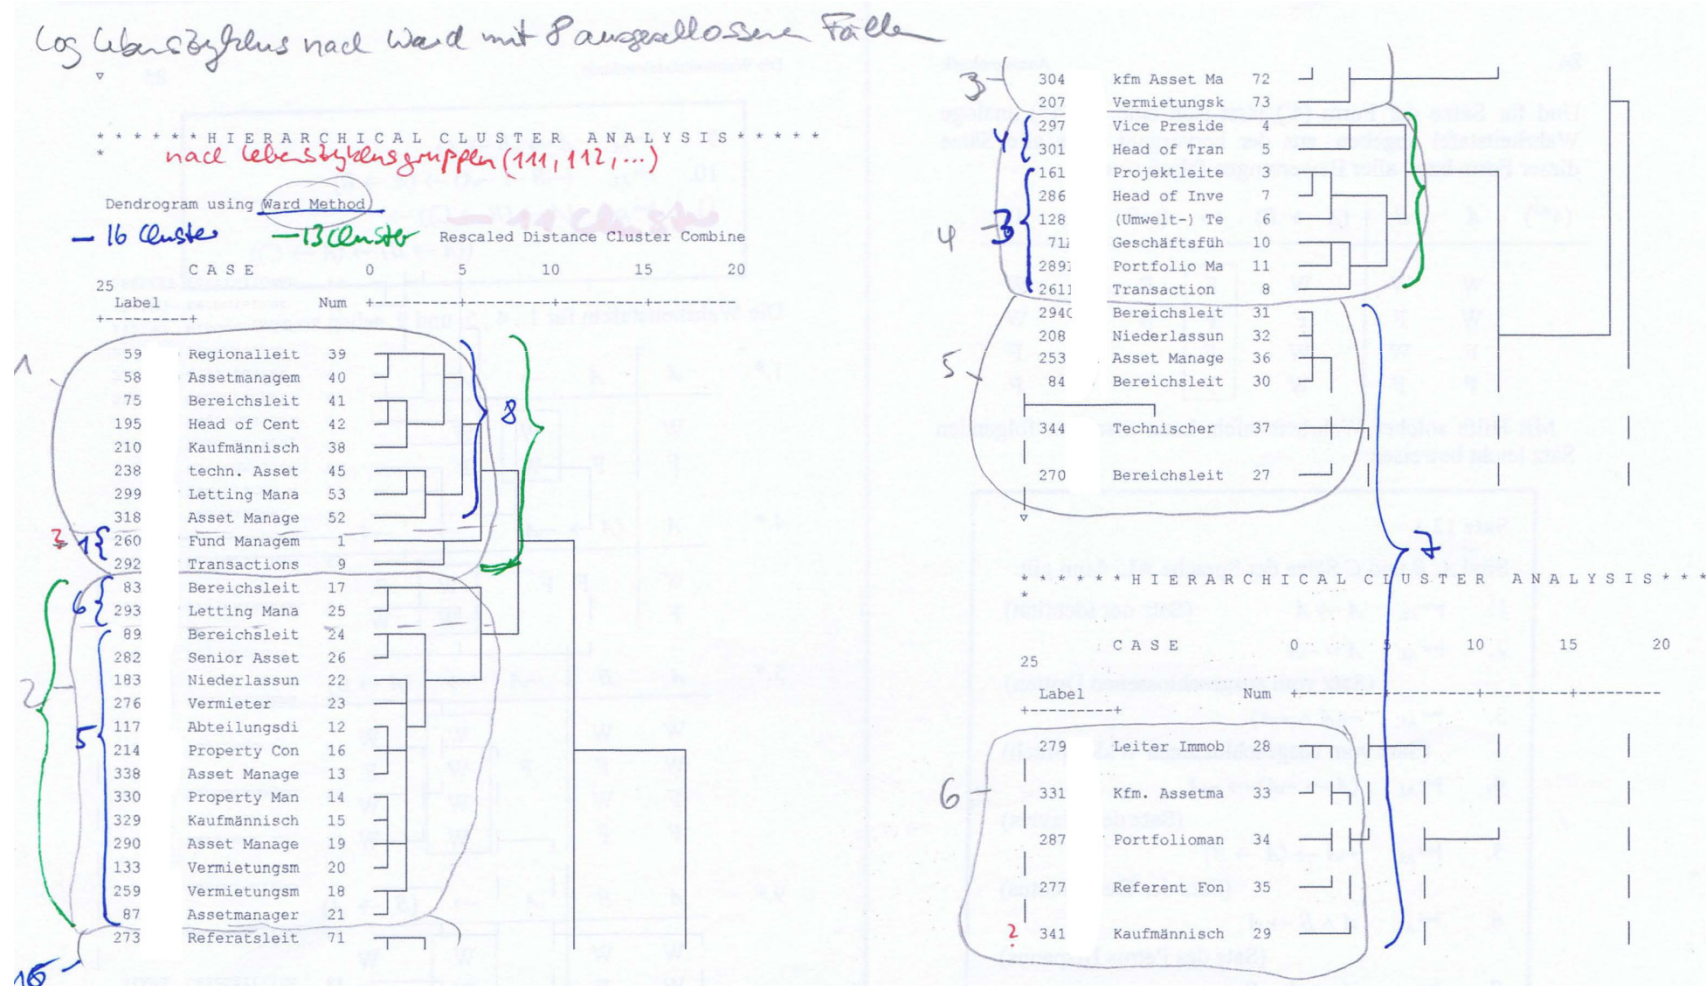 Log Lebenszyklus nach Ward mit 8 ausgeschlossenen Fällen
* * * * * * H I E R A R C H I C A L  C L U S T E R  A N A L Y S I S * * * * *
*
nach Lebenszyklusgruppen (111, 112, ...)
Dendrogram using Ward Method
— 16 Cluster
— 13 Cluster
Rescaled Distance Cluster Combine
C A S E 0 5 10 15 20
25
Label Num
1
59 Regionalleit 39
58 Assetmanagem 40
75 Bereichsleit 41
195 Head of Cent 42
8
210 Kaufmännisch 38
238 techn. Asset 45
299 Letting Mana 53
318 Asset Manage 52
? 1 260 Fund Managem 1
292 Transactions 9
83 Bereichsleit 17
6
293 Letting Mana 25
89 Bereichsleit 24
282 Senior Asset 26
2
183 Niederlassun 22
276 Vermieter 23
117 Abteilungsdi 12
5
214 Property Con 16
338 Asset Manage 13
330 Property Man 14
329 Kaufmännisch 15
290 Asset Manage 19
133 Vermietungsm 20
259 Vermietungsm 18
87 Assetmanager 21
273 Referatsleit 71
16
3
304 kfm Asset Ma 72
207 Vermietungsk 73
297 Vice Preside 4
4
301 Head of Tran 5
161 Projektleite 3
286 Head of Inve 7
128 (Umwelt-) Te 6
4 3
71 Geschäftsfüh 10
289 Portfolio Ma 11
261 Transaction 8
294 Bereichsleit 31
208 Niederlassun 32
253 Asset Manage 36
5
84 Bereichsleit 30
344 Technischer 37
270 Bereichsleit 27
7
* * * * * * H I E R A R C H I C A L  C L U S T E R  A N A L Y S I S * * *
*
C A S E 0 5 10 15 20
25
Label Num
279 Leiter Immob 28
6
331 Kfm. Assetma 33
287 Portfolioman 34
277 Referent Fon 35
? 341 Kaufmännisch 29